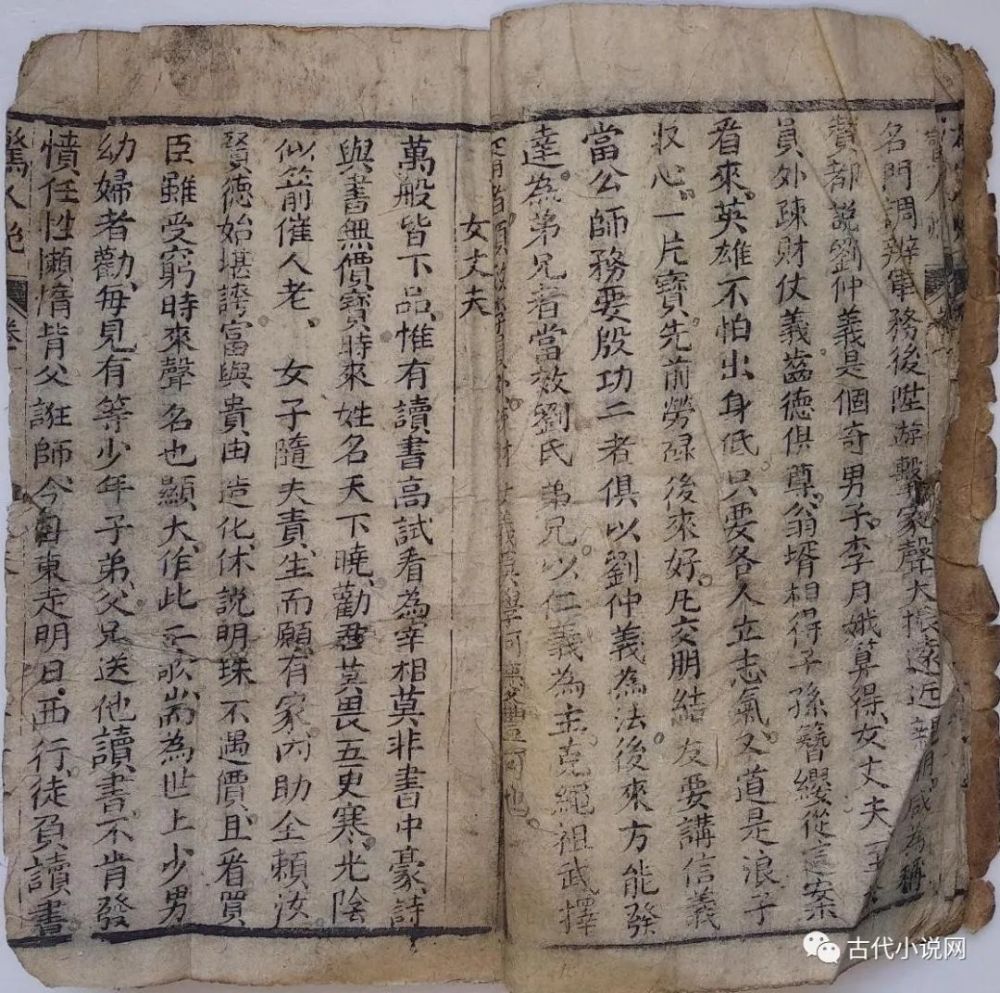 名門調辦軍務後陞游擊家聲大振遠近親朋咸為稱
贊都說劉仲義是個奇男子李月娥算得女丈夫至
員外疎財仗義齒德俱尊翁壻相得子孫簪纓從這案
看來英雄不怕出身低只要各人立志氣又道是浪子
收心一片寶先前勞碌後來好凡交朋結友要講信義
當公師務要殷功二者俱以劉仲義為法後來方能發
達為弟兄者當效劉氏弟兄以仁義為主克繩祖武擇
女丈夫
萬般皆下品惟有讀書高試看為宰相莫非書中豪詩
與書無價寶時來姓名天下曉勸君莫畏五史寒光陰
似箭催人老 女子隨夫責生而願有家內助全賴汝
賢德始堪誇富與貴由造化休說明珠不遇價且看買
臣雖受窮時來聲名也顯大作此二歌耑為世上少男
幼婦者勸每見有等少年子弟父兄送他讀書不肯發
憤任性懶惰背父誑師今日東走明日西行徒負讀書
驚人炮 卷一
古代小说网